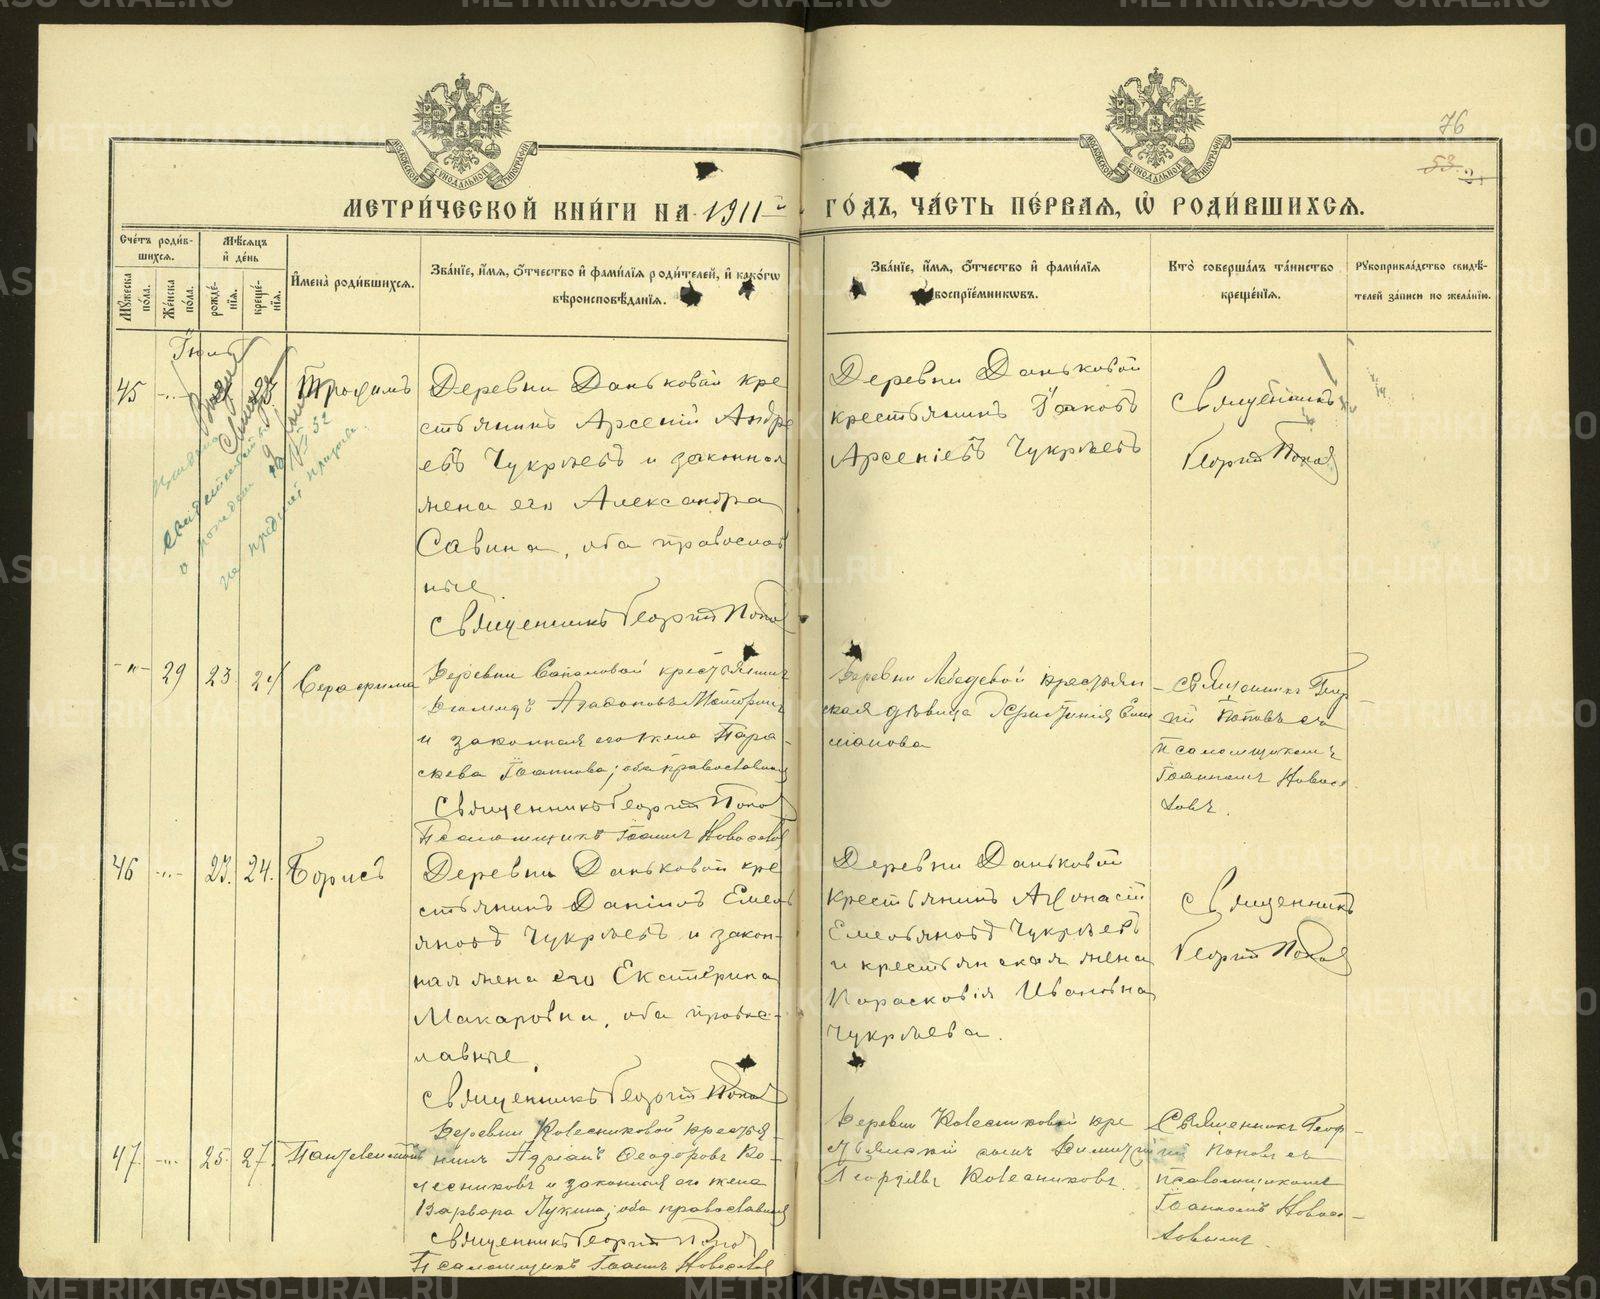 МЕТРИ́ЧЕСКОЙ КНИ́ГИ НА 1911 й ГО́ДЪ, ЧА́СТЬ ПЕ́РВАЯ, Ѡ҆ РОДИ́ВШИХСЯ.
76
53
Сче́тъ роди́в-
шихся.
Мѣ́сяцъ
и҆ де́нь
Мꙋ́жеска по́ла.
Же́нска по́ла.
рожде́-нїя.
креще́-нїя.
И҆мена̀ роди́вшихся.
Зва́нїе, и҆́мя, ѻ҆́тчество и҆ фами́лїя роди́телей, и҆ како́гѡ
вѣроисповѣ́данїя.
Зва́нїе, и҆́мя, ѻ҆́тчество и҆ фами́лїя
воспрїе́мникѡвъ.
Кто̀ соверша́лъ та́инство
креще́нїя.
Рꙋкоприкла́дство свидѣ́-
телей за́писи по жела́нїю.
Іюль
45
23.
Трофимъ
Деревни Даньковой кре
стьянинъ Арсеній Андре
евъ Чукрѣевъ и законная
жена его Александра
Савина, оба православ
ные.
Священникъ Георгій Попов
Деревни Даньковой
крестьянинъ Іаковъ
Арсеніевъ Чукрѣевъ
Священникъ
Георгій Попов
свидетельство
№ 32
-"- 29 23. 24
Серафима
Деревни крестьянинъ
и законная его жена Пара-
скева Іоаннова; оба православные
Священникъ Георгій Попов
Псаломщикъ Іоаннъ Новоселов
Деревни Лебедевой крестьян
ская дѣвица Христинія
Священникъ Геор
гій Поповъ съ
псаломщикомъ
Іоанномъ Новосе
ловъ.
46 -"- 23. 24.
Борисъ
Деревни Даньковой кре
стьянинъ Даніилъ Емель
яновъ Чукрѣевъ и закон-
ная жена его Екатерина
Макаровна, оба правос-
лавные.
Священникъ Георгій Попов
Деревни Даньковой
крестьянинъ Афонасій
Емельяновъ Чукрѣевъ
и крестьянская жена
Парасковія Ивановна
Чукрѣева.
Священникъ
Георгій Попов
47. -"- 25. 27.
Пантелеимонъ
Деревни Колесниковой крестья-
нинъ Адріанъ Ѳеодоровъ Ко-
лесниковъ и законная его жена
Варвара Лукина; оба православные
Священникъ Георгій Попов
Псаломщикъ Іоаннъ Новоселов
Деревни Колесниковой кре
стьянскій сынъ Димитрій
Георгіевъ Колесниковъ.
Священникъ Геор-
гій Поповъ съ
псаломщикомъ
Іоанномъ Новосе-
ловымъ.
METRIKI.GASO-URAL.RU